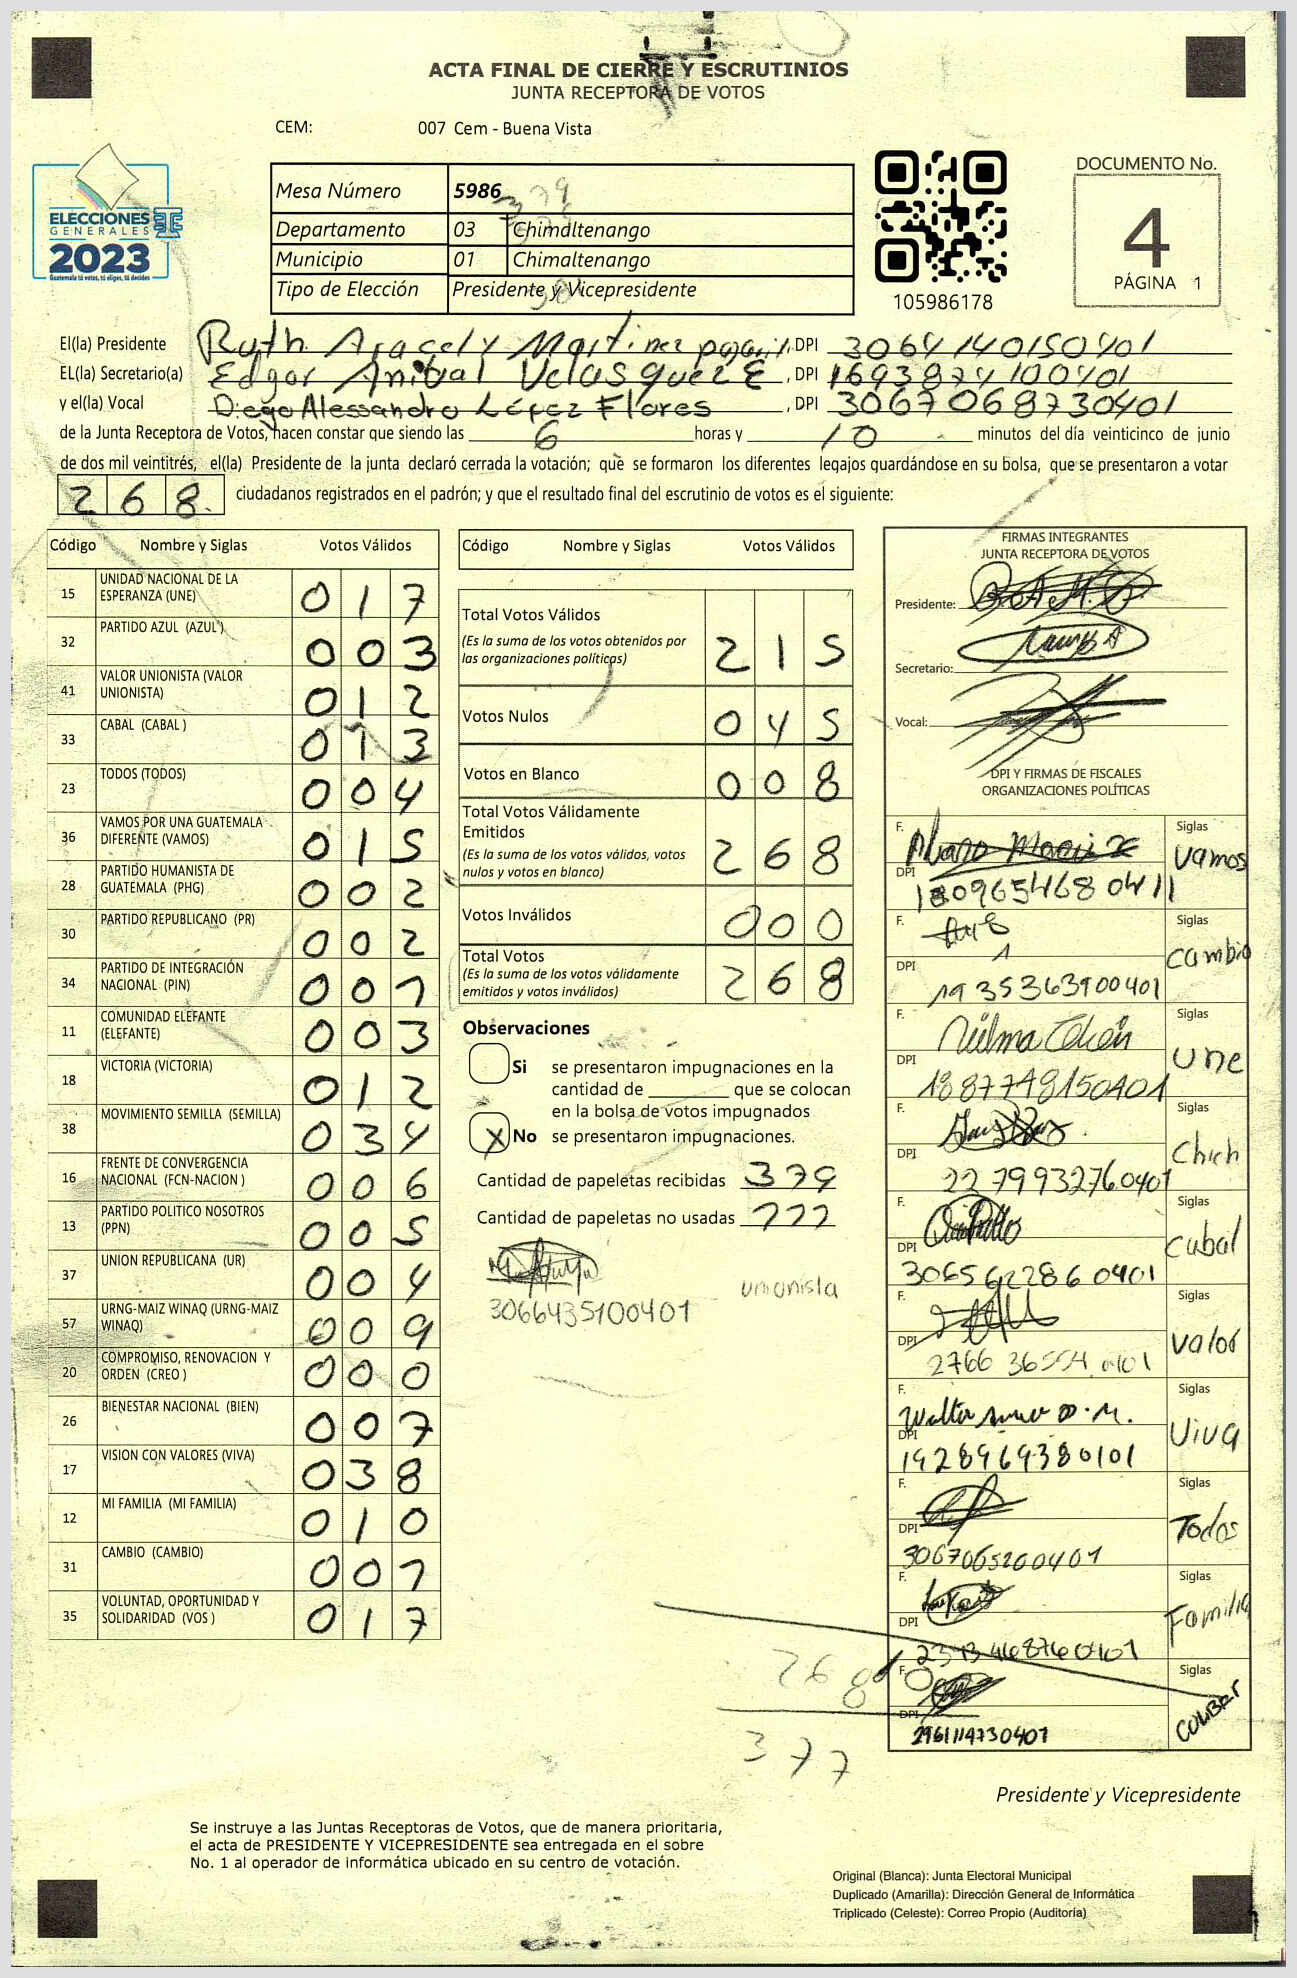 ACTA FINAL DE CIERRE Y ESCRUTINIOS
JUNTA RECEPTORA DE VOTOS
CEM: 007 Cem - Buena Vista
ELECCIONES
GENERALES
2023
Guatemala tú votas, tú eliges, tú decides
Mesa Número 5986
Departamento 03 Chimaltenango
Municipio 01 Chimaltenango
Tipo de Elección Presidente y Vicepresidente
105986178
DOCUMENTO No.
4
PÁGINA 1
El(la) Presidente Ruth Aracely Martinez, DPI 3064140150401
EL(la) Secretario(a) Edgar Anibal Velasquez E, DPI 1693874100401
y el(la) Vocal Diego Alessandro López Flores, DPI 3067068730401
de la Junta Receptora de Votos, hacen constar que siendo las 6 horas y 10 minutos del día veinticinco de junio
de dos mil veintitrés, el(la) Presidente de la junta declaró cerrada la votación; que se formaron los diferentes legajos guardándose en su bolsa, que se presentaron a votar
268 ciudadanos registrados en el padrón; y que el resultado final del escrutinio de votos es el siguiente:
Código Nombre y Siglas Votos Válidos
15 UNIDAD NACIONAL DE LA ESPERANZA (UNE) 017
32 PARTIDO AZUL (AZUL) 003
41 VALOR UNIONISTA (VALOR UNIONISTA) 012
33 CABAL (CABAL ) 013
23 TODOS (TODOS) 004
36 VAMOS POR UNA GUATEMALA DIFERENTE (VAMOS) 015
28 PARTIDO HUMANISTA DE GUATEMALA (PHG) 002
30 PARTIDO REPUBLICANO (PR) 002
34 PARTIDO DE INTEGRACIÓN NACIONAL (PIN) 001
11 COMUNIDAD ELEFANTE (ELEFANTE) 003
18 VICTORIA (VICTORIA) 012
38 MOVIMIENTO SEMILLA (SEMILLA) 034
16 FRENTE DE CONVERGENCIA NACIONAL (FCN-NACION ) 006
13 PARTIDO POLITICO NOSOTROS (PPN) 005
37 UNION REPUBLICANA (UR) 004
57 URNG-MAIZ WINAQ (URNG-MAIZ WINAQ) 009
20 COMPROMISO, RENOVACION Y ORDEN (CREO ) 000
26 BIENESTAR NACIONAL (BIEN) 007
17 VISION CON VALORES (VIVA) 038
12 MI FAMILIA (MI FAMILIA) 010
31 CAMBIO (CAMBIO) 001
35 VOLUNTAD, OPORTUNIDAD Y SOLIDARIDAD (VOS ) 017
Código Nombre y Siglas Votos Válidos
Total Votos Válidos 215
(Es la suma de los votos obtenidos por
las organizaciones políticas)
Votos Nulos 045
Votos en Blanco 008
Total Votos Válidamente
Emitidos 268
(Es la suma de los votos válidos, votos
nulos y votos en blanco)
Votos Inválidos 000
Total Votos 268
(Es la suma de los votos válidamente
emitidos y votos inválidos)
Observaciones
Si se presentaron impugnaciones en la
cantidad de ________ que se colocan
en la bolsa de votos impugnados
X No se presentaron impugnaciones.
Cantidad de papeletas recibidas 379
Cantidad de papeletas no usadas 111
3066435100401
unionista
FIRMAS INTEGRANTES
JUNTA RECEPTORA DE VOTOS
Presidente:
Secretario:
Vocal:
DPI Y FIRMAS DE FISCALES
ORGANIZACIONES POLÍTICAS
F. Siglas Vamos
DPI
F. Siglas Cambio
DPI 1935363900401
F. Siglas Une
DPI 1887748150401
F. Siglas Chich
DPI 2279932760401
F. Siglas Cabal
DPI 3065622860401
F. Siglas Valor
DPI 2766 36554 0101
F. Walter Siglas Viva
DPI 1928969380101
F. Siglas Todos
DPI 3067065200401
F. Siglas Familia
DPI 2343468760401
F. Siglas
DPI 2961114730401
268
377
Presidente y Vicepresidente
Se instruye a las Juntas Receptoras de Votos, que de manera prioritaria,
el acta de PRESIDENTE Y VICEPRESIDENTE sea entregada en el sobre
No. 1 al operador de informática ubicado en su centro de votación.
Original (Blanca): Junta Electoral Municipal
Duplicado (Amarilla): Dirección General de Informática
Triplicado (Celeste): Correo Propio (Auditoría)